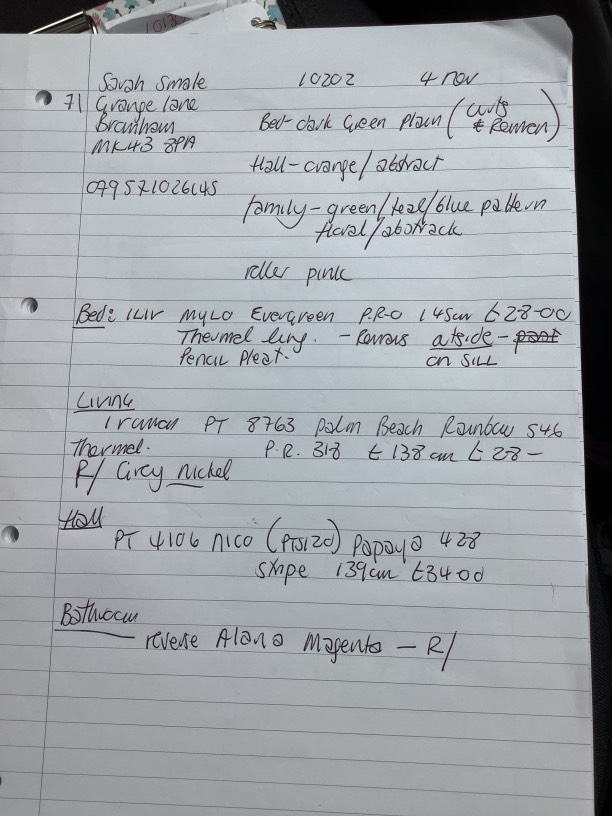 1013
Sarah Smale 10202 4 nov
71 Grange lane
Bromham Bed - dark Green Plain (curts
MK43 8PA & Roman)
Hall - orange / abstract
079571026145
family - green/teal/blue pattern
floral/abstrack
roller pink
Bed: ILIV MYLO Evergreen P.R-0 145cm £28-00
Thermal ling. - Romans outside -
Pencil Pleat. on SILL
Living
PT 8763 Palm Beach Rainbow 546
Thermal. P.R. 31.8 £ 138 cm £28-
R/ Grey nickel
Hall
PT 4106 Nico (PTS120) Papaya 428
stripe 139cm £34 00
Bathroom
reverse Alana Magenta - R/